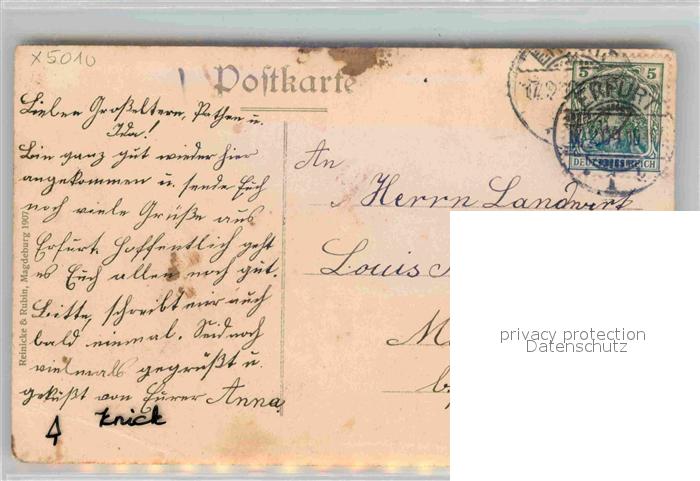 x5010
Postkarte
Lieben Großeltern, Pathen u.
Ida!
Bin ganz gut wieder hier
angekommen u. sende Euch
noch viele Grüße aus
Erfurt. Hoffentlich geht
es Euch allen noch gut.
Bitte, schreibt mir auch
bald einmal. Seid noch
vielmals gegrüßt u.
geküßt von Eurer Anna.
Knick
Reinicke & Rubin, Magdeburg 1907
5 5
ERFURT
DEUTSCHES REICH
1
An
Herrn Landwirt
Louis
privacy protection
Datenschutz